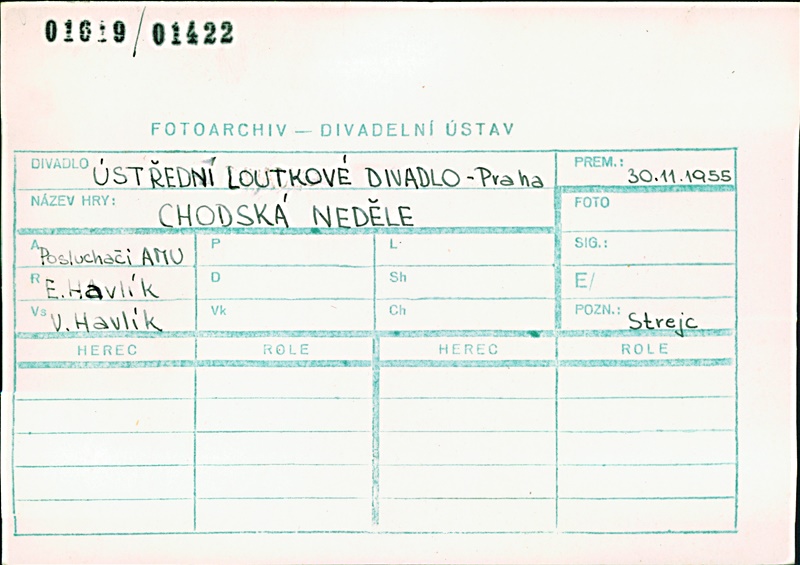 01619/01422
FOTOARCHIV — DIVADELNÍ ÚSTAV
DIVADLO ÚSTŘEDNÍ LOUTKOVÉ DIVADLO - Praha
PREM.: 30.11.1955
NÁZEV HRY: CHODSKÁ NEDĚLE
FOTO
A Posluchači AMU
P
L
SIG.:
R E. Havlík
D
Sh
E/
Vs V. Havlík
Vk
Ch
POZN.: Strejc
HEREC ROLE HEREC ROLE